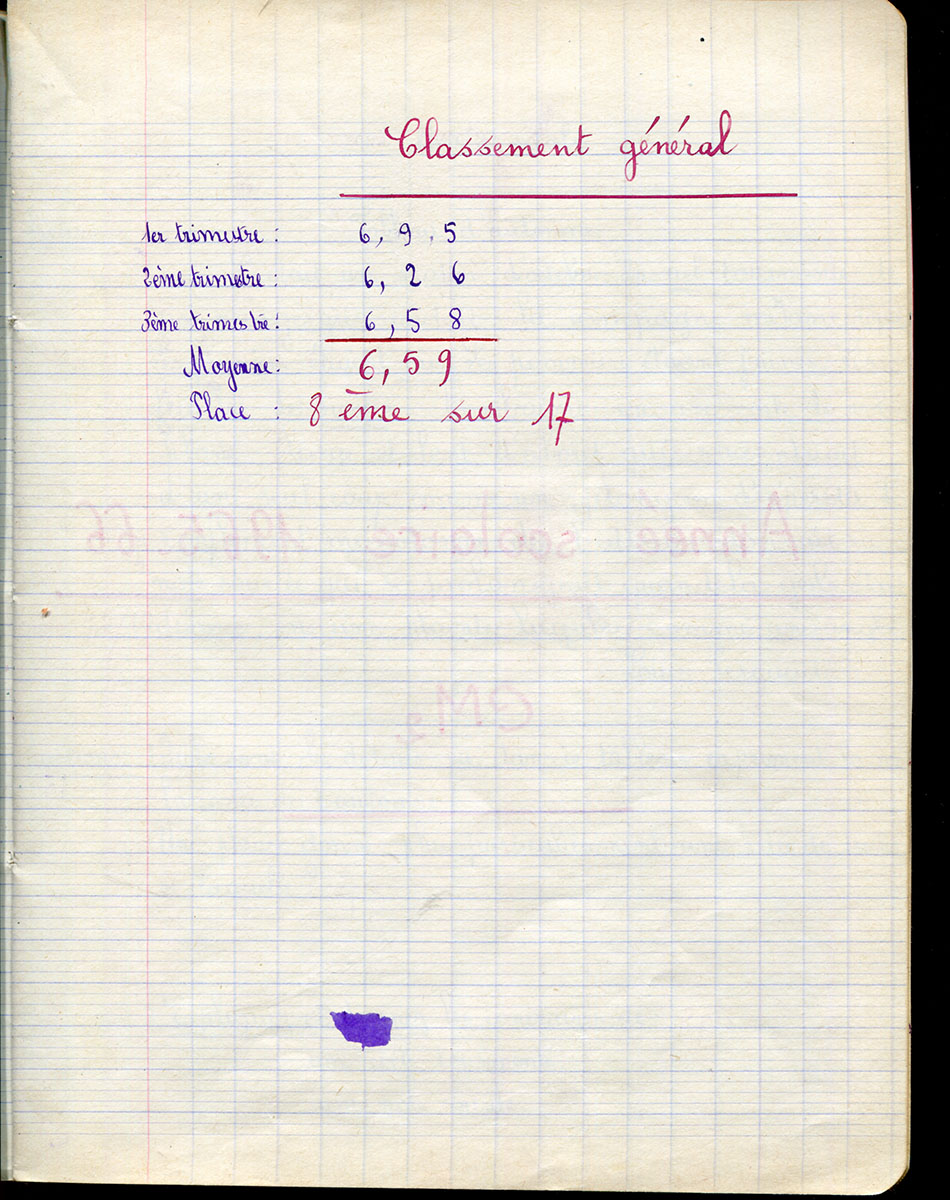 Classement général
1er trimestre : 6, 9 5
2ème trimestre : 6, 2 6
3ème trimestre : 6, 5 8
Moyenne : 6, 5 9
Place : 8 ème sur 17
Année scolaire 1965.66
CM2